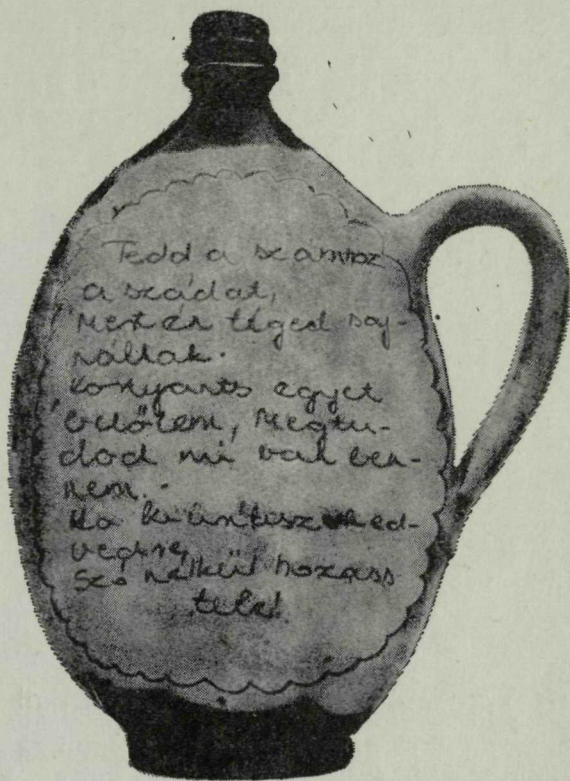 Tedd a számhoz
a szádat,
Mert én téged saj-
nállak.
Konyants egyet
belőlem, Megtu-
dod mi van ben-
nem.
Ha kiüritesz
Szó nélkül hozass
tele!